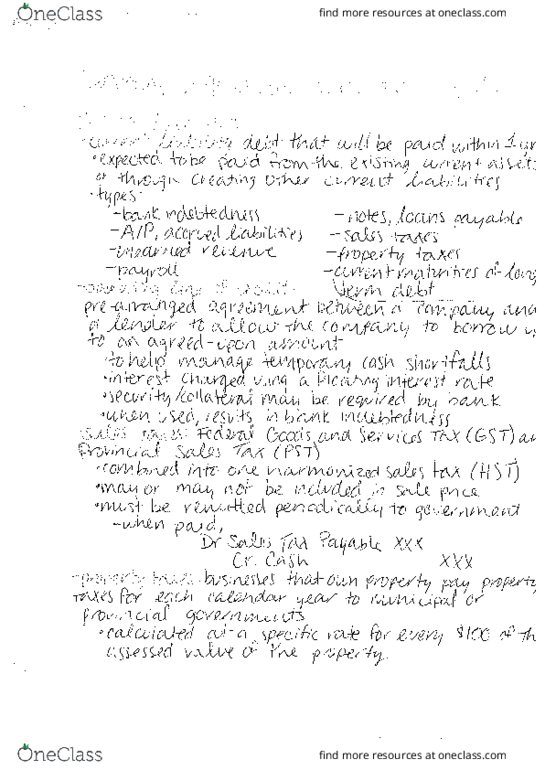 OneClass
find more resources at oneclass.com
current liability debt that will be paid within 1
•expected to be paid from the existing current assets
or through creating other current liabilities
•types
-bank indebtedness -notes, loans payable
-A/P, accrued liabilities -sales taxes
-unearned revenue -property taxes
-payroll -current maturities of long
term debt
operating line of credit:
pre-arranged agreement between a company and
a lender to allow the company to borrow
to an agreed-upon amount
•to help manage temporary cash shortfalls
•interest charged using a floating interest rate
•security/collateral may be required by bank
•when used, results in bank indebtedness
sales taxes: Federal Goods and Services Tax (GST)
Provincial Sales Tax (PST)
•combined into one harmonized sales tax (HST)
•may or may not be included in sale price
•must be remitted periodically to government
-when paid,
Dr Sales Tax Payable XXX
Cr. Cash XXX
-property taxes: businesses that own property pay property
taxes for each calendar year to municipal or
provincial governments
•calculated at a specific rate for every $100 of
assessed value of the property.
OneClass
find more resources at oneclass.com